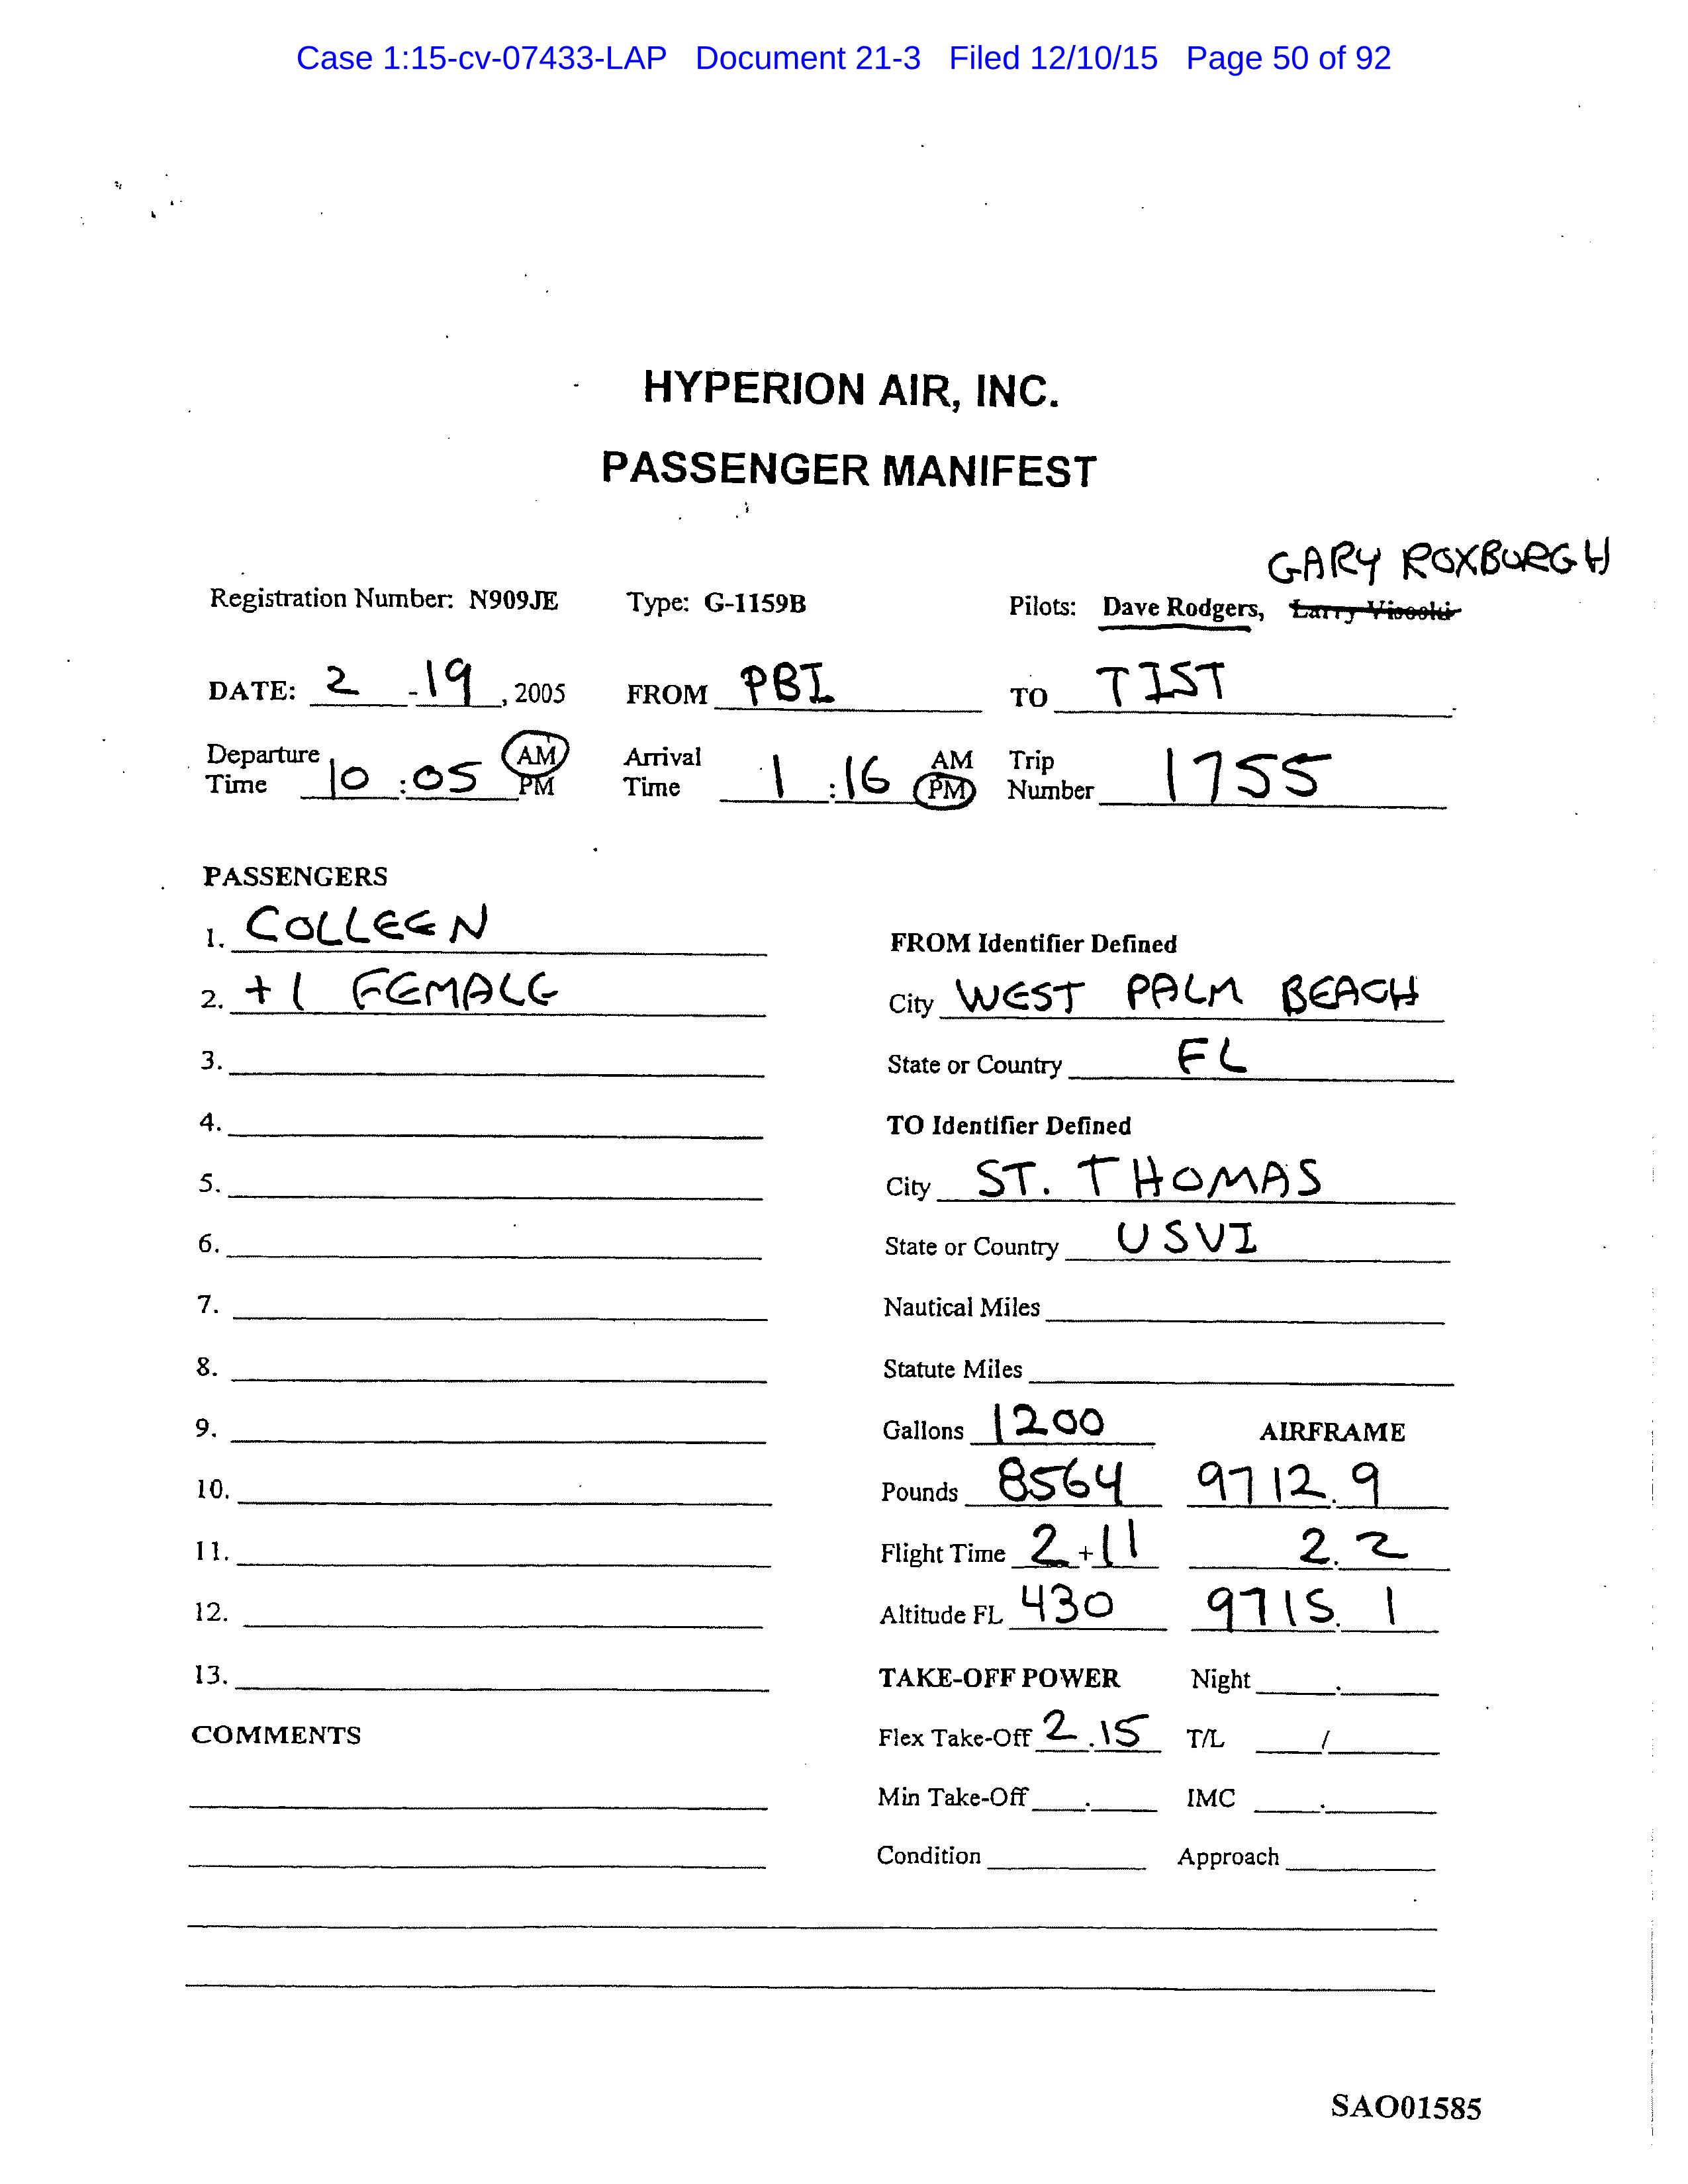 Case 1:15-cv-07433-LAP Document 21-3 Filed 12/10/15 Page 50 of 92
HYPERION AIR, INC.
PASSENGER MANIFEST
GARY ROXBURGH
Registration Number: N909JE Type: G-1159B Pilots: Dave Rodgers, Larry Visoski
DATE: 2 - 19, 2005 FROM PBI TO TIST
Departure Time 10:05 AM PM Arrival Time 1:16 AM PM Trip Number 1755
PASSENGERS
1. COLLEEN
FROM Identifier Defined
2. +1 FEMALE
City WEST PALM BEACH
3.
State or Country FL
4.
TO Identifier Defined
5.
City ST. THOMAS
6.
State or Country USVI
7.
Nautical Miles
8.
Statute Miles
9.
Gallons 1200 AIRFRAME
10.
Pounds 8564 9712.9
11.
Flight Time 2+11 2.2
12.
Altitude FL 430 9715.1
13.
TAKE-OFF POWER Night .
COMMENTS
Flex Take-Off 2.15 T/L /
Min Take-Off . IMC .
Condition Approach
SAO01585